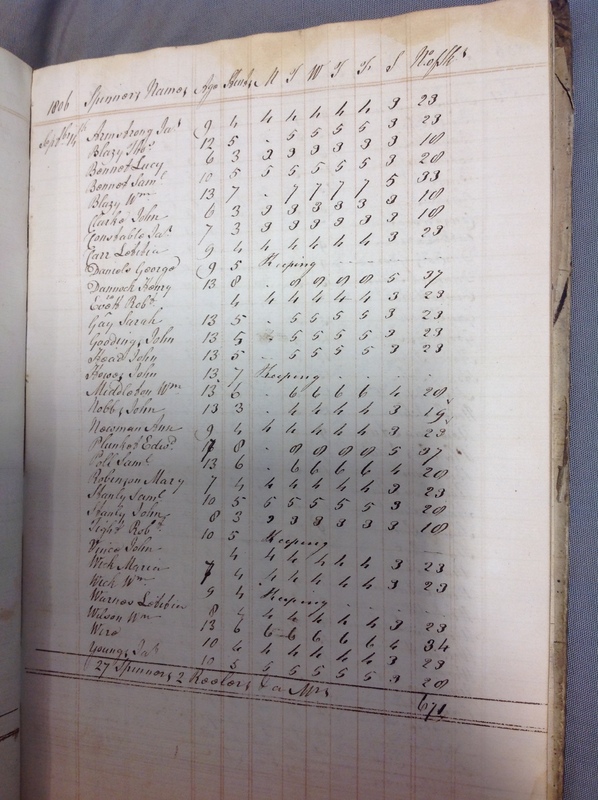 1806 Spinners Names Age Stints M T W T F S No. of Sks
Septbr 14th Armstrong Jas 9 4 4 4 4 4 4 3 23
Blazy Thos 12 5 - 5 5 5 5 3 23
Bennet Lucy 6 3 3 3 3 3 3 3 18
Bennet Saml 10 5 5 5 5 5 5 3 28
Blazy Wm 13 7 - 7 7 7 7 5 33
Clarke John 6 3 3 3 3 3 3 3 18
Constable Jas 7 3 3 3 3 3 3 3 18
Carr Lebbeu 9 4 4 4 4 4 4 3 23
Daniels George 9 5 Keeping
Dannock Henry 13 8 - 8 8 8 8 5 37
Evett Robt 4 4 4 4 4 4 3 23
Gay Sarah 13 5 - 5 5 5 5 3 23
Gooding John 13 5 - 5 5 5 5 3 23
Head John 13 5 - 5 5 5 5 3 23
Howes John 13 7 Keeping
Middleton Wm 13 6 - 6 6 6 6 4 28
Nobbs John 13 3 - 4 4 4 4 3 19
Newman Ann 9 4 4 4 4 4 4 3 23
Plunket Edwd 8 - 8 8 8 8 5 37
Poll Saml 13 6 - 6 6 6 6 4 28
Robinson Mary 7 4 4 4 4 4 4 3 23
Stanly Saml 10 5 5 5 5 5 5 3 28
Stanly John 8 3 3 3 3 3 3 3 18
Tight Robt 10 5 Keeping
John 4 4 4 4 4 4 3 23
Wick Maria 7 4 4 4 4 4 4 3 23
Wick Wm 9 4 Keeping
Warnes Lebbeu 8 4 4 4 4 4 4 3 23
Wilson Wm 13 6 6 6 6 6 6 4 34
10 4 4 4 4 4 4 3 23
Youngs Jas 10 5 5 5 5 5 5 3 28
27 Spinners 2 Reelers & a Mrs 671